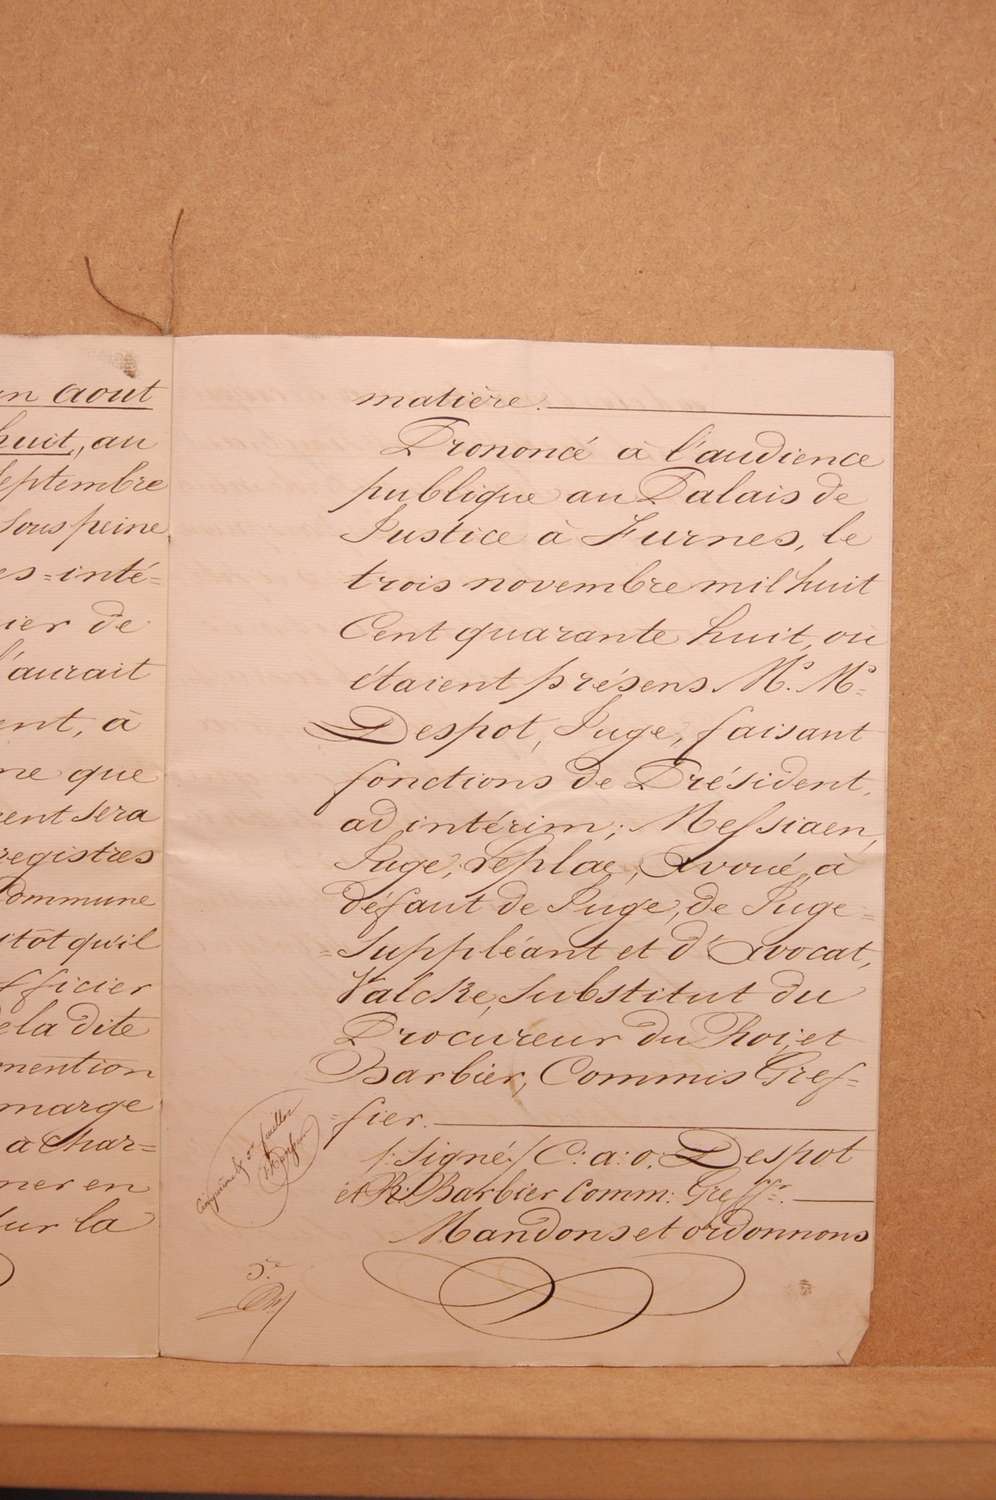 an Aout
huit, au
Septembre
sous peine
es=inté=
ier de
l'aurait
ent, à
me que
ment sera
registres
Commune
itôt qu'il
officier
de la dite
mention
marge
a char=
ner en
sur la
matière.
Prononcé à l'audience
publique au Palais de
Justice à Furnes, le
trois novembre mil huit
Cent quarante huit, où
étaient présens M.rs M.rs
Despot, Juge, faisant
fonctions de Président,
ad intérim; Messiaen,
Juge, Replaç, Avoué, à
défaut de Juge, de Juge=
=Suppléant et d'Avocat,
Valcke, Substitut du
Procureur du Roi, et
Barbier, Commis Gref=
=fier.
/:signé:/ C: a: o. Despot
et R: Barbier Comm: Greff.r
Mandons et ordonnons